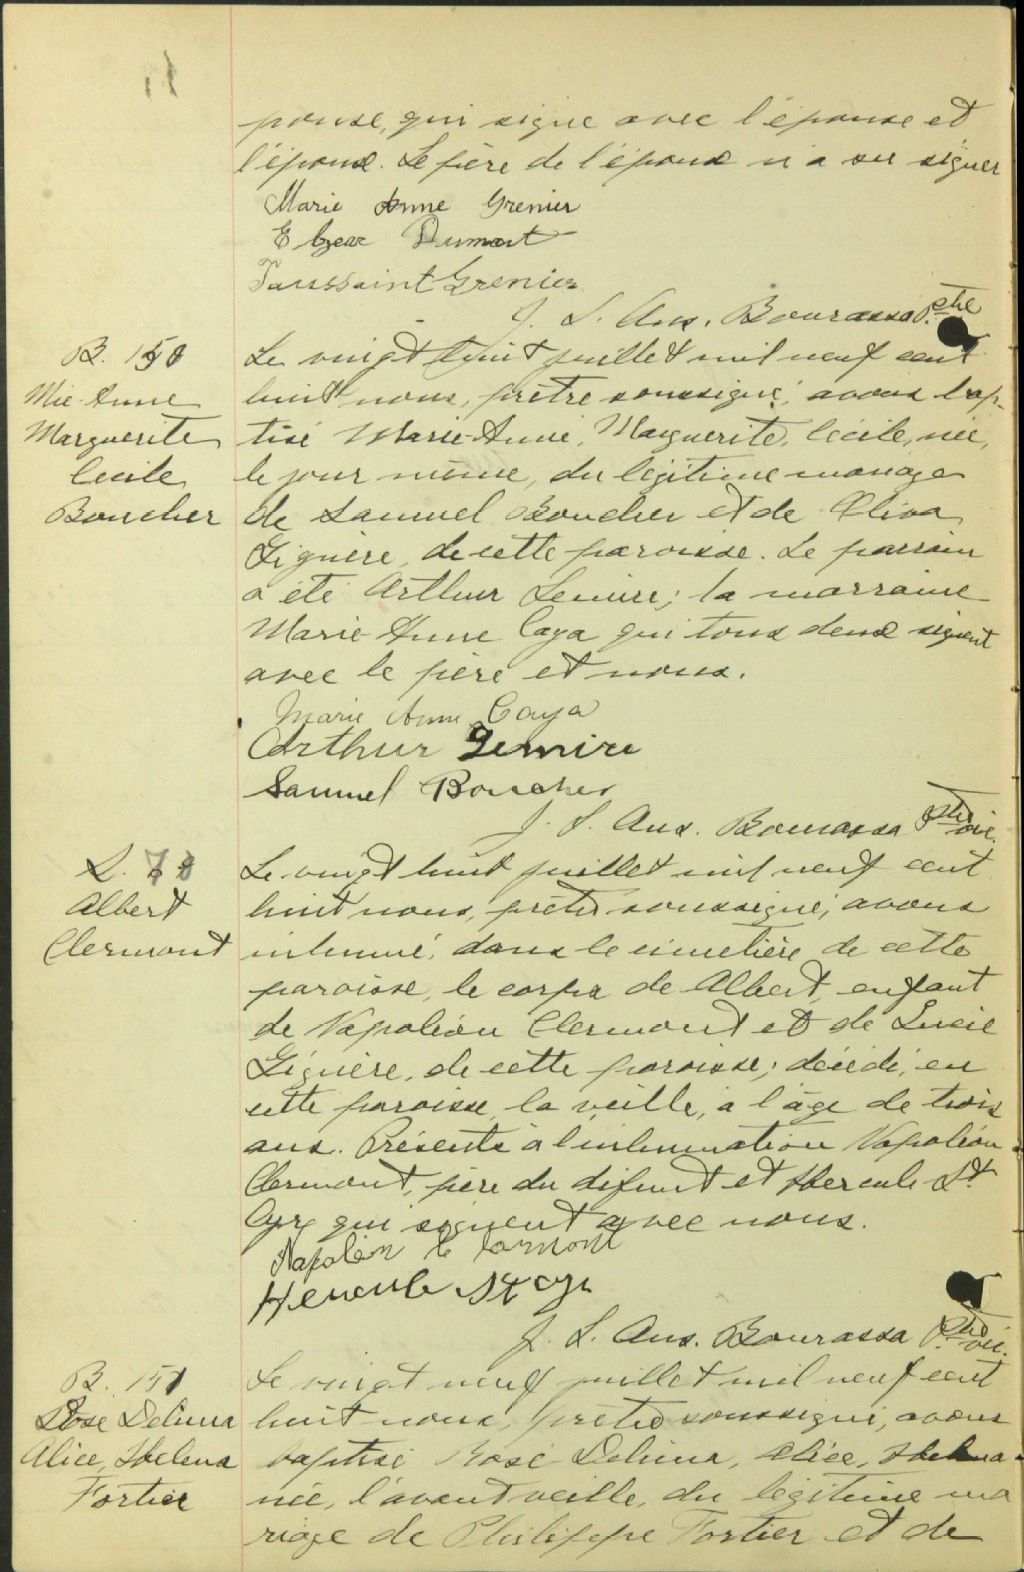 pouse, qui signe avec l'épouse et
l'époux. Le père de l'époux n'a su signer
Marie Anne Grenier
Elzear Dumont
Toussaint Grenier
J. L. Ans. Bourassa Ptre
B. 150
Mie-Anne
Marguerite
Cecile
Boucher
Le vingt huit juillet mil neuf cent
huit nous, prêtre soussigné, avons bap-
tisé Marie-Anne, Marguerite, Cécile, née,
le jour même, du légitime mariage
de Samuel Boucher et de Oliva
Gignère, de cette paroisse. Le parrain
a été Arthur Lemire; la marraine
Marie-Anne Caya qui tous deux signent
avec le père et nous.
Marie Anne Caya
Arthur Lemire
Samuel Boucher
J. L. Ans. Bourassa Ptre vic.
S. 78
Albert
Clermont
Le vingt huit juillet mil neuf cent
huit nous, prêtre soussigné, avons
inhumé, dans le cimetière de cette
paroisse, le corps de Albert, enfant
de Napoléon Clermont et de Lucie
Gignère, de cette paroisse; décédé, en
cette paroisse, la veille, à l'âge de trois
ans. Présents à l'inhumation Napoléon
Clermont, père du défunt et Hercule St
Cyr qui signent avec nous.
Napoléon Clermont
Hercule St Cyr
J. L. Ans. Bourassa Ptre vic.
B. 151
Rose Delima
Alice, Helena
Fortier
Le vingt neuf juillet mil neuf cent
huit nous, prêtre soussigné, avons
baptisé Rose Delima, Alice, Helena
née, l'avant veille, du légitime ma
riage de Philippe Fortier et de